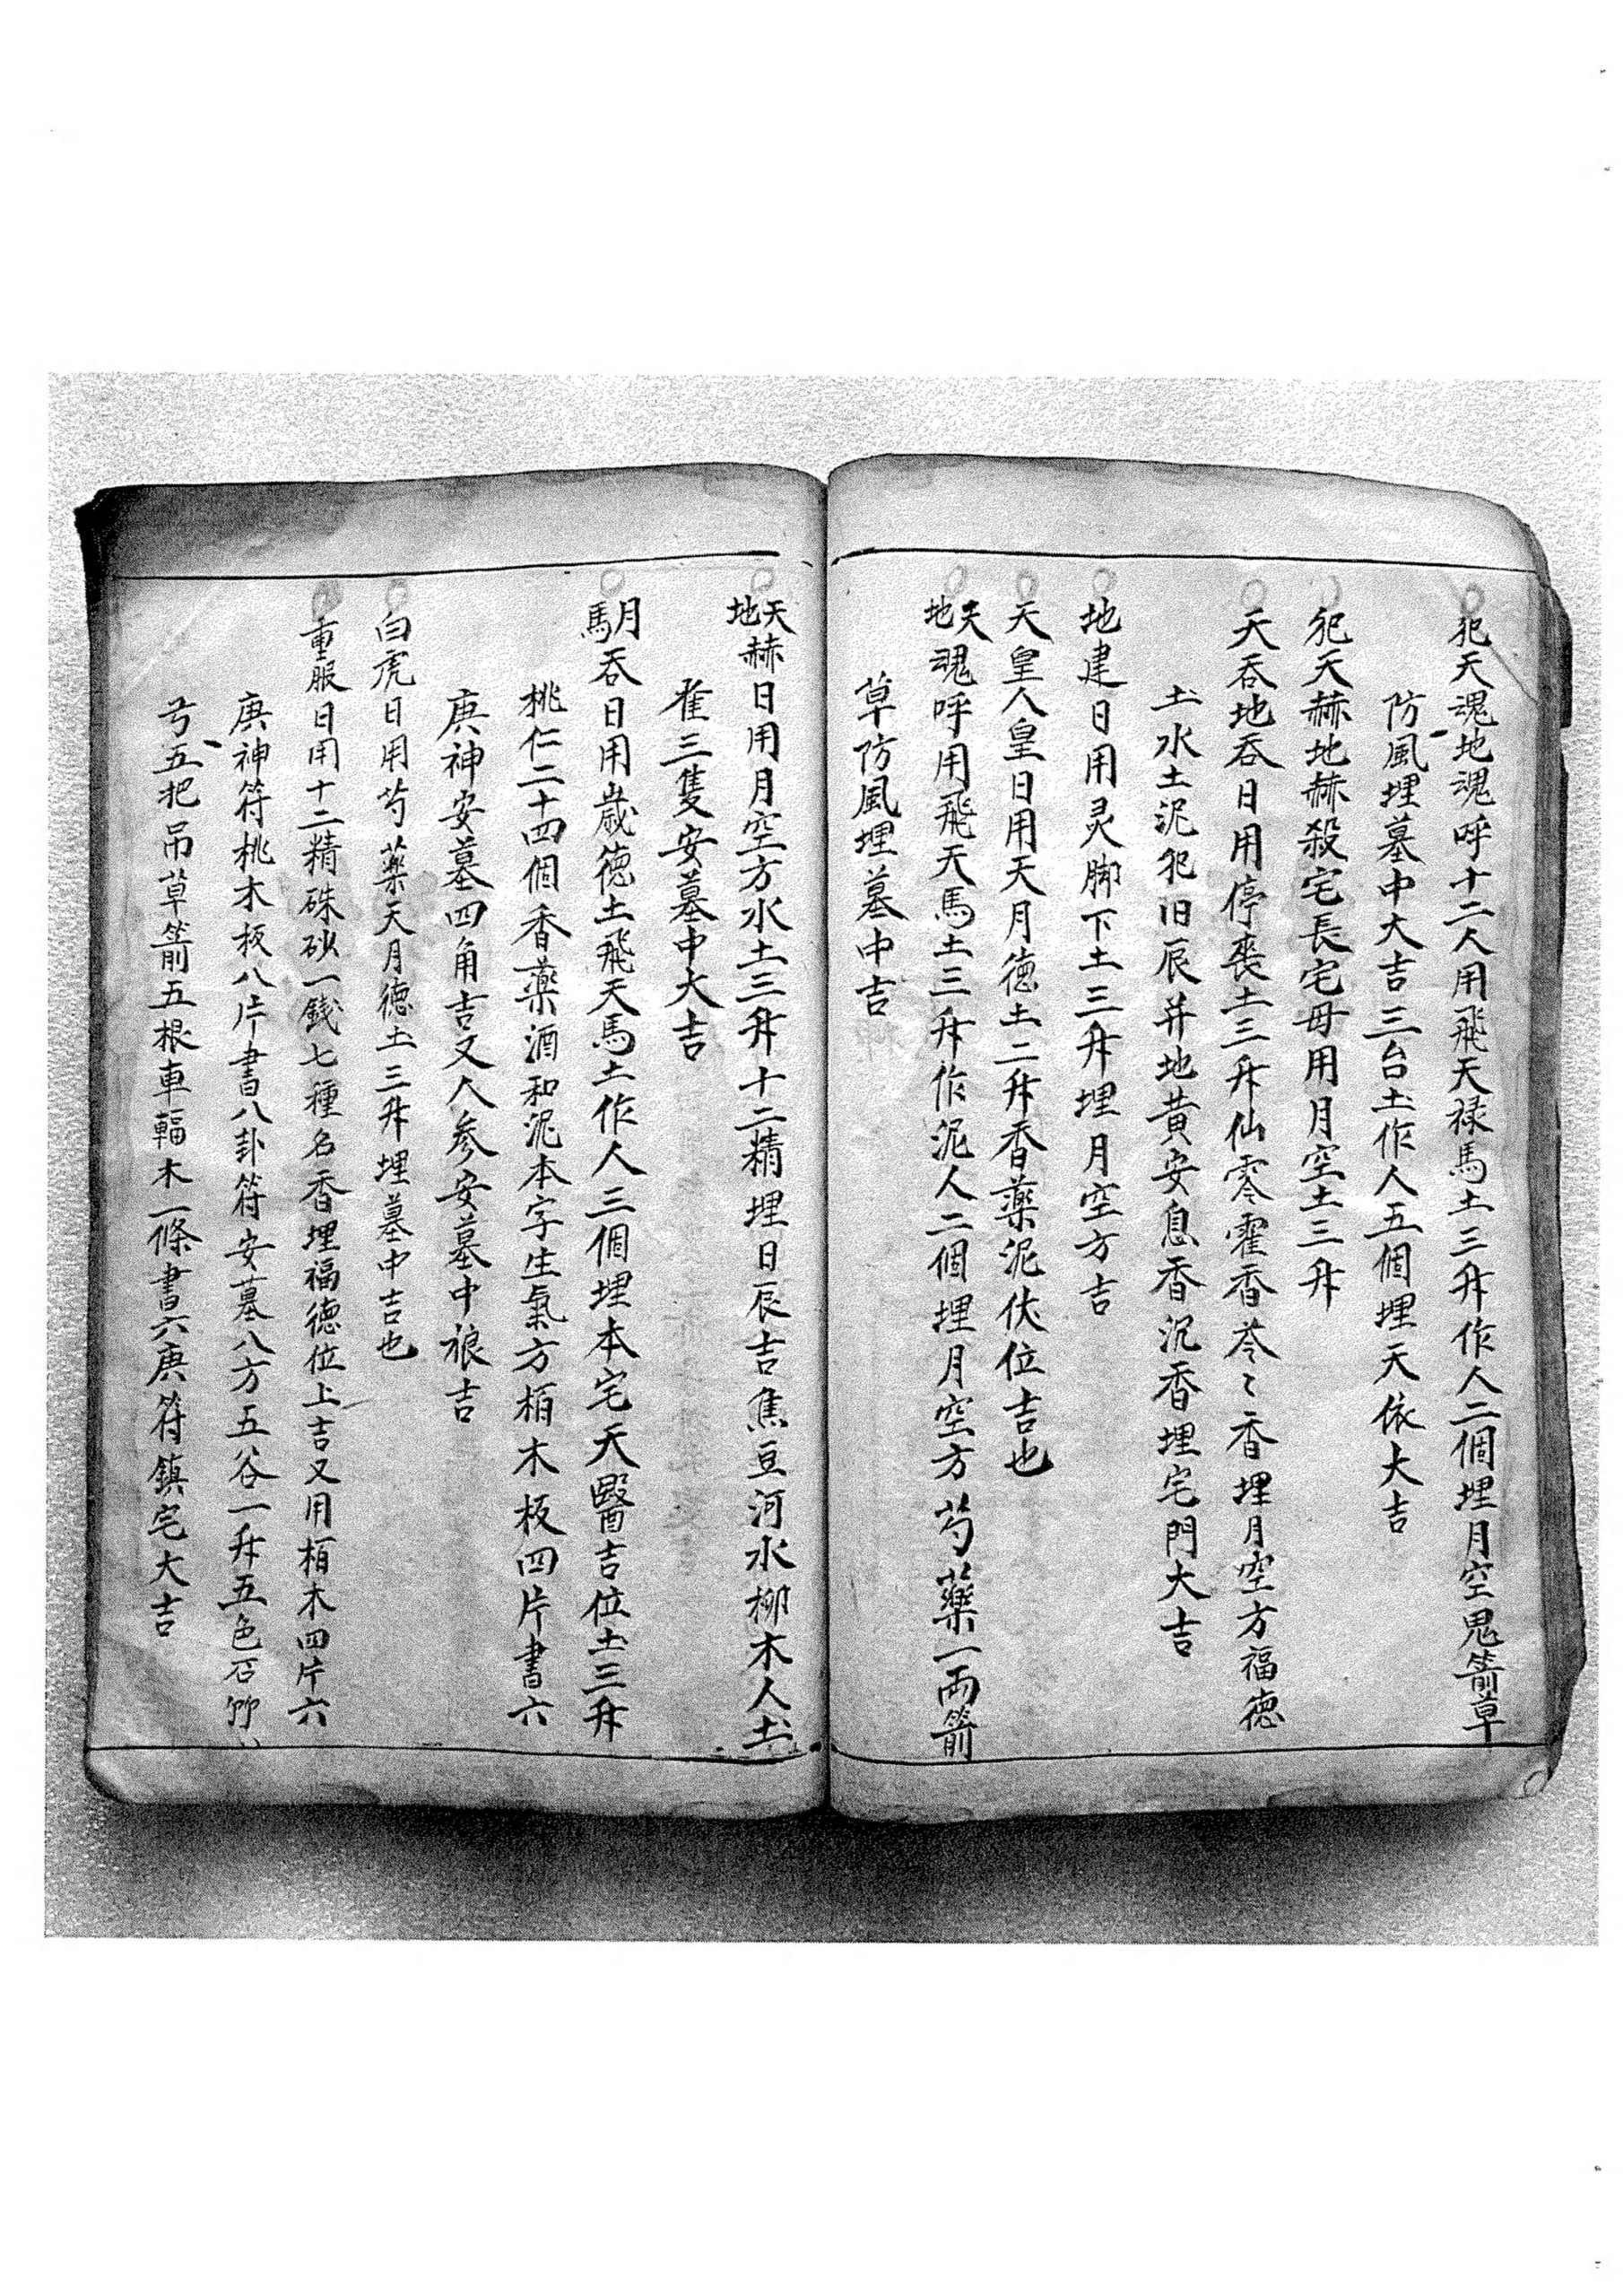 犯天魂地魂呼十二人用飛天禄馬土三升作人二個埋月空鬼箭草
防風埋墓中大吉三台土作人五個埋天依大吉
犯天赫地赫殺宅長宅母用月空土三升
天吞地吞日用停喪土三升仙零霍香苓〻香埋月空方福德
土水土泥犯旧辰并地黄安息香沉香埋宅門大吉
地建日用灵脚下土三升埋月空方吉
天皇人皇日用天月德土二升香藥泥伏位吉也
天地魂呼用飛天馬土三升作泥人二個埋月空方芍藥一両箭
草防風埋墓中吉
天地赫日用月空方水土三升十二精埋日辰吉焦豆河水柳木人土
雀三隻安墓中大吉
月馬吞日用歲德土飛天馬土作人三個埋本宅天醫吉位土三升
桃仁二十四個香藥酒和泥本字生氣方栢木板四片書六
庚神安墓四角吉又人参安墓中裉吉
白虎日用芍藥天月德土三升埋墓中吉也
重服日用十二精硃砂一錢七種名香埋福德位上吉又用栢木四片六
庚神符桃木板八片書八卦符安墓八方五谷一升五色石
弓五把吊草箭五根車輻木一條書六庚符鎮宅大吉